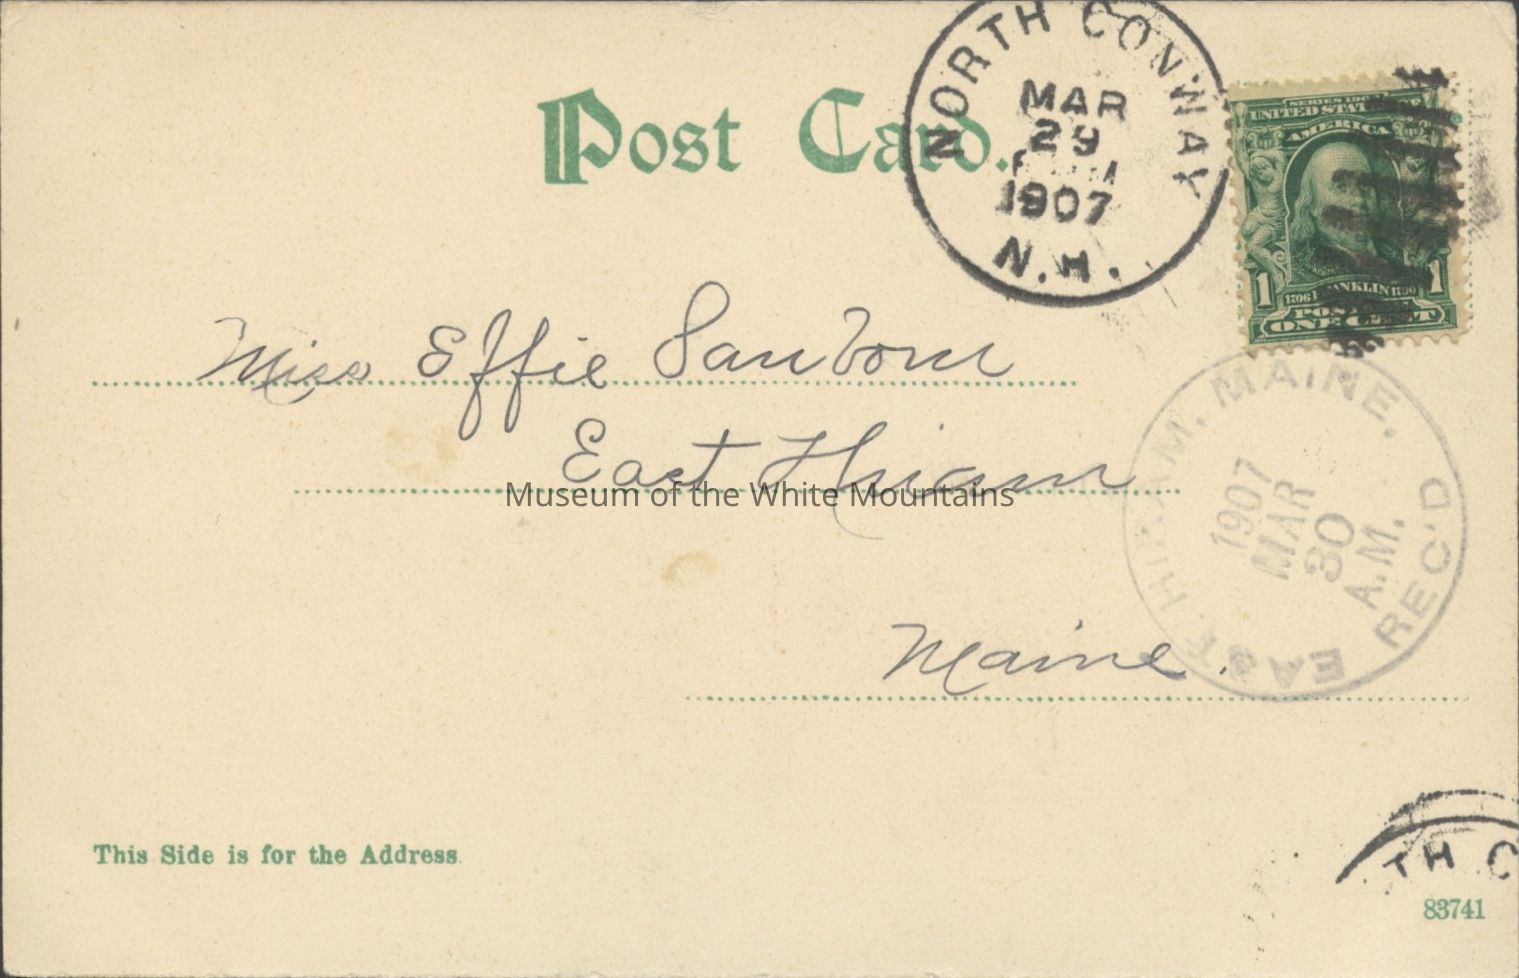 NORTH CONWAY
MAR
29
1907
N.H.
Post Card.
SERIES 1902
UNITED STATES OF
AMERICA
1 1
1706 FRANKLIN 1790
POSTAGE
ONE CENT
Miss Effie Sanborn
East Hiram
Maine.
Museum of the White Mountains
EAST HIRAM, MAINE.
1907
MAR
30
A.M.
REC'D
This Side is for the Address
TH C
83741